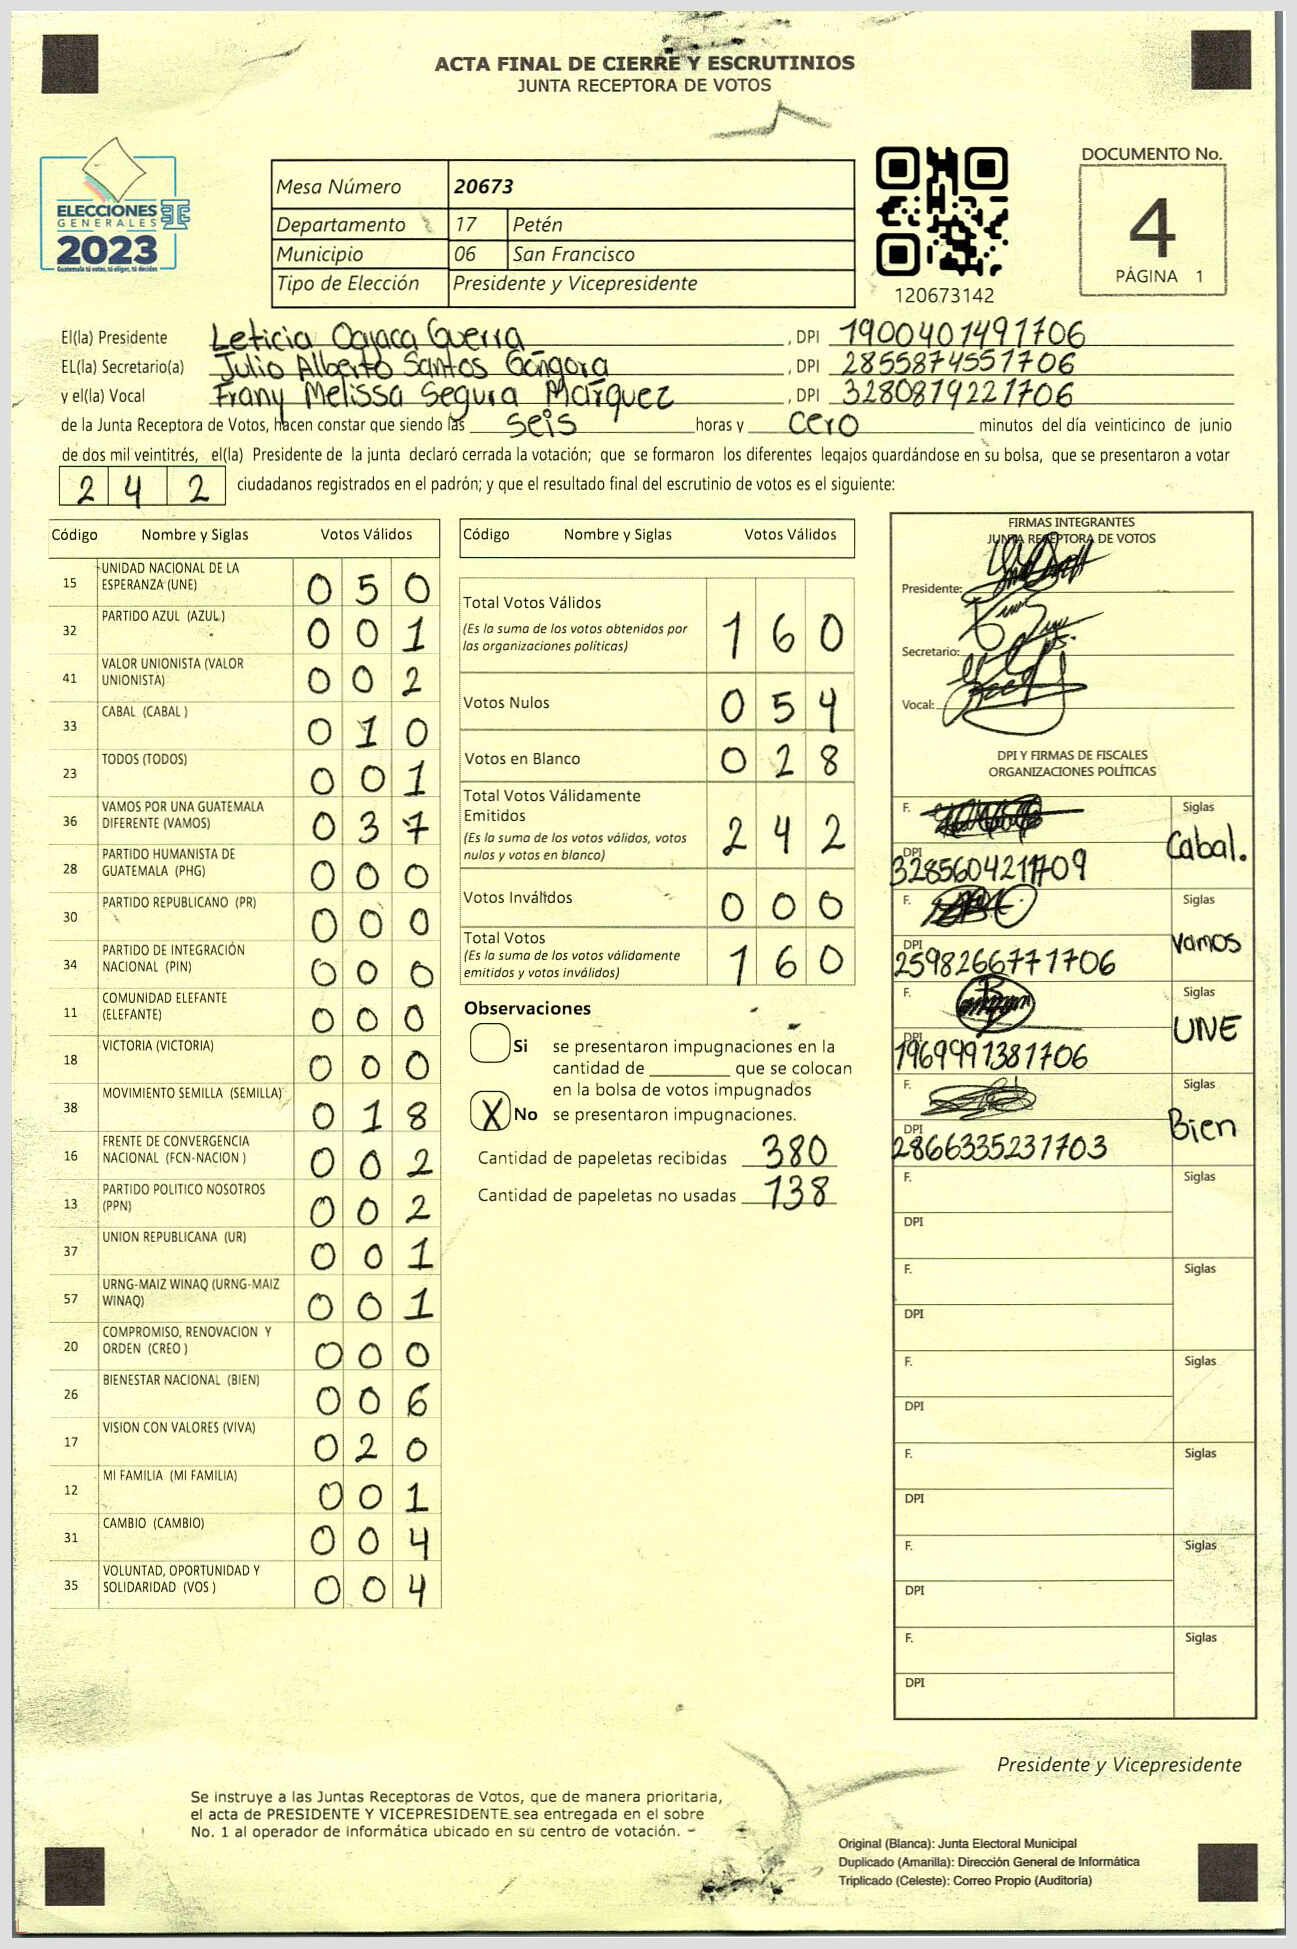 ACTA FINAL DE CIERRE Y ESCRUTINIOS
JUNTA RECEPTORA DE VOTOS
ELECCIONES
GENERALES
2023
Guatemala tú votas, tú eliges, tú decides
Mesa Número 20673
Departamento 17 Petén
Municipio 06 San Francisco
Tipo de Elección Presidente y Vicepresidente
120673142
DOCUMENTO No.
4
PÁGINA 1
El(la) Presidente Leticia Guerra , DPI 1900401491706
EL(la) Secretario(a) Julio Alberto Santos Góngora , DPI 2855874551706
y el(la) Vocal Frany Melissa Segura Márquez , DPI 3280819221706
de la Junta Receptora de Votos, hacen constar que siendo las seis horas y cero minutos del día veinticinco de junio
de dos mil veintitrés, el(la) Presidente de la junta declaró cerrada la votación; que se formaron los diferentes legajos guardándose en su bolsa, que se presentaron a votar
2 4 2 ciudadanos registrados en el padrón; y que el resultado final del escrutinio de votos es el siguiente:
Código Nombre y Siglas Votos Válidos
15 UNIDAD NACIONAL DE LA ESPERANZA (UNE) 0 5 0
32 PARTIDO AZUL (AZUL) 0 0 1
41 VALOR UNIONISTA (VALOR UNIONISTA) 0 0 2
33 CABAL (CABAL ) 0 1 0
23 TODOS (TODOS) 0 0 1
36 VAMOS POR UNA GUATEMALA DIFERENTE (VAMOS) 0 3 7
28 PARTIDO HUMANISTA DE GUATEMALA (PHG) 0 0 0
30 PARTIDO REPUBLICANO (PR) 0 0 0
34 PARTIDO DE INTEGRACIÓN NACIONAL (PIN) 0 0 0
11 COMUNIDAD ELEFANTE (ELEFANTE) 0 0 0
18 VICTORIA (VICTORIA) 0 0 0
38 MOVIMIENTO SEMILLA (SEMILLA) 0 1 8
16 FRENTE DE CONVERGENCIA NACIONAL (FCN-NACION ) 0 0 2
13 PARTIDO POLITICO NOSOTROS (PPN) 0 0 2
37 UNION REPUBLICANA (UR) 0 0 1
57 URNG-MAIZ WINAQ (URNG-MAIZ WINAQ) 0 0 1
20 COMPROMISO, RENOVACION Y ORDEN (CREO ) 0 0 0
26 BIENESTAR NACIONAL (BIEN) 0 0 6
17 VISION CON VALORES (VIVA) 0 2 0
12 MI FAMILIA (MI FAMILIA) 0 0 1
31 CAMBIO (CAMBIO) 0 0 4
35 VOLUNTAD, OPORTUNIDAD Y SOLIDARIDAD (VOS ) 0 0 4
Código Nombre y Siglas Votos Válidos
Total Votos Válidos 1 6 0
(Es la suma de los votos obtenidos por
las organizaciones políticas)
Votos Nulos 0 5 4
Votos en Blanco 0 2 8
Total Votos Válidamente
Emitidos 2 4 2
(Es la suma de los votos válidos, votos
nulos y votos en blanco)
Votos Inválidos 0 0 0
Total Votos 1 6 0
(Es la suma de los votos válidamente
emitidos y votos inválidos)
Observaciones
Si se presentaron impugnaciones en la
cantidad de ________ que se colocan
en la bolsa de votos impugnados
X No se presentaron impugnaciones.
Cantidad de papeletas recibidas 380
Cantidad de papeletas no usadas 138
FIRMAS INTEGRANTES
JUNTA RECEPTORA DE VOTOS
Presidente:
Secretario:
Vocal:
DPI Y FIRMAS DE FISCALES
ORGANIZACIONES POLÍTICAS
F. Siglas
Cabal.
DPI
F. Siglas
Vamos
DPI 2598266771706
F. Siglas
UNE
DPI 1969991381706
F. Siglas
Bien
DPI 2866335231703
F. Siglas
DPI
F. Siglas
DPI
F. Siglas
DPI
F. Siglas
DPI
F. Siglas
DPI
F. Siglas
DPI
Presidente y Vicepresidente
Se instruye a las Juntas Receptoras de Votos, que de manera prioritaria,
el acta de PRESIDENTE Y VICEPRESIDENTE sea entregada en el sobre
No. 1 al operador de informática ubicado en su centro de votación.
Original (Blanca): Junta Electoral Municipal
Duplicado (Amarilla): Dirección General de Informática
Triplicado (Celeste): Correo Propio (Auditoría)